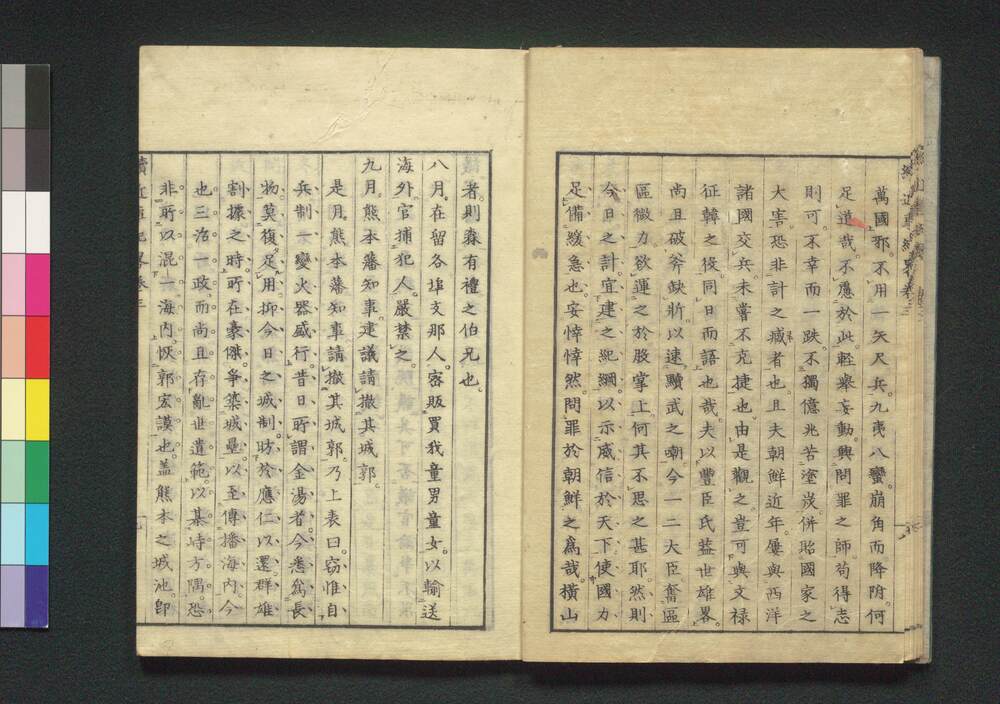 萬國邪。不用一矢尺兵九夷八蠻。崩角而降附何
足道哉。不應於此。輕擧妄動。興問罪之師。苟得志
則可。不幸而一跌。不獨億兆苦塗炭。併貽國家之
大害。恐非計之臧者也。且夫朝鮮近年屢與西洋
諸國交兵。未嘗不克捷也。由是觀之。豈可與文祿
征韓之役。同日而語也哉。夫以豐臣氏蓋世雄畧。
尚且破斧缺斨。以速黷武之嘲。今一二大臣奮區
區微力。欲運之於股掌上。何其不思之甚耶。然則
今日之計。宜建之紀綱。以示威信於天下。使國力
足備緩急也。安悻悻然。問罪於朝鮮之爲哉。橫山
者。則森有禮之伯兄也。
八月。在留各埠支那人。密販買我童男童女。以輸送
海外。官捕犯人。嚴禁之。
九月。熊本藩知事。建議請撤其城郭。
是月。熊本藩知事請撤其城郭。乃上表曰。竊惟自
兵制一變火器盛行。昔日所謂金湯者。今悉爲長
物。莫復足用。抑今日之城制。昉於應仁以還。群雄
割據之時。所在豪傑。爭築城壘。以至傳播海内。今
也三治一政。而尚且存亂世遺範。以棊峙方隅。恐
非所以混一海内。恢郭宏謨也。蓋熊本之城池。卽
續近事紀畧卷三